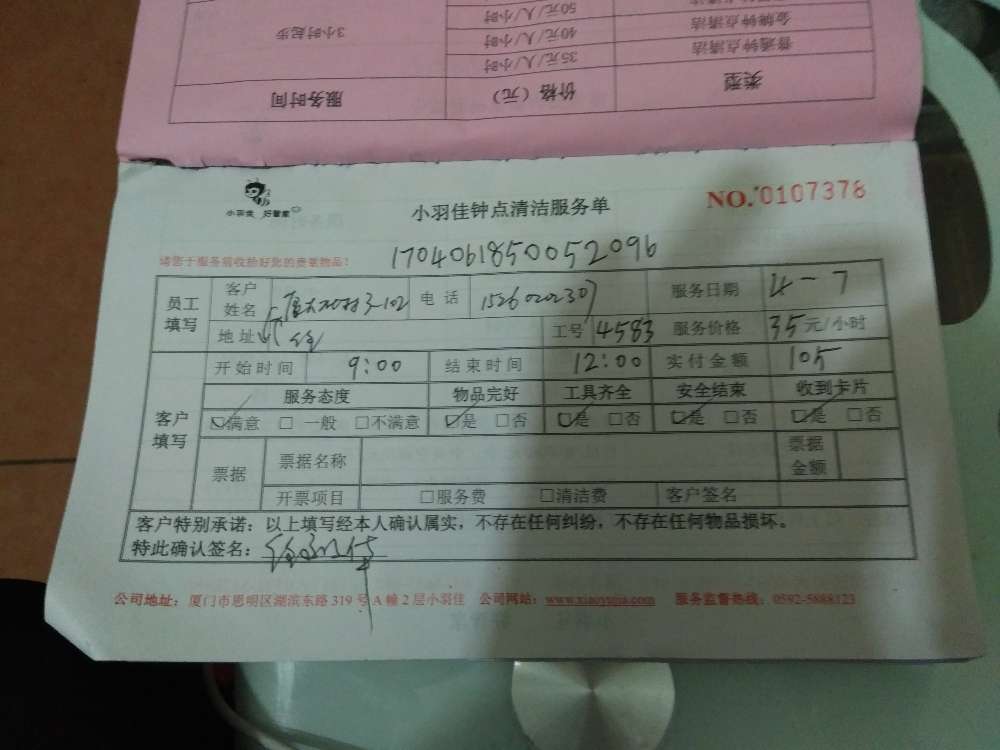 50元/人/小时
金牌钟点清洁 40元/人/小时 3小时起步
普通钟点清洁 35元/人/小时
类型 价格（元） 服务时间
小羽佳 好管家
小羽佳钟点清洁服务单
NO. 0107378
请您于服务前收拾好您的贵重物品！
1704061850052096
员工填写 客户姓名 电话 服务日期 4-7
地址 工号 4583 服务价格 35元/小时
客户填写 开始时间 9:00 结束时间 12:00 实付金额 105
服务态度 物品完好 工具齐全 安全结束 收到卡片
☑满意 □一般 □不满意 ☑是 □否 ☑是 □否 ☑是 □否 ☑是 □否
票据 票据名称 票据金额
开票项目 □服务费 □清洁费 客户签名
客户特别承诺：以上填写经本人确认属实，不存在任何纠纷，不存在任何物品损坏。
特此确认签名：
公司地址：厦门市思明区湖滨东路319号A幢2层小羽佳 公司网站：www.xiaoyujia.com 服务监督热线：0592-5888123